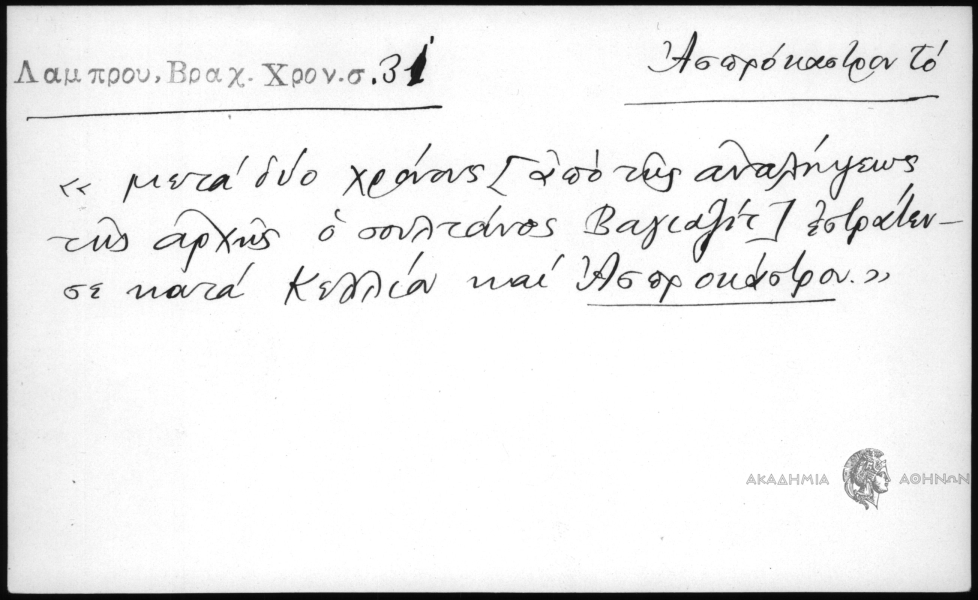 Λαμπρου, Βραχ. Χρον. σ. 31
Ἀσπρόκαστρον τό
«μετά δύο χρόνους [ἀπό τῆς ἀναλήψεως
τῆς ἀρχῆς ὁ σουλτάνος Βαγιαζίτ] ἐστράτευ-
σε κατά Κελλίον καί Ἀσπροκάστρον.»
ΑΚΑΔΗΜΙΑ ΑΘΗΝΩΝ